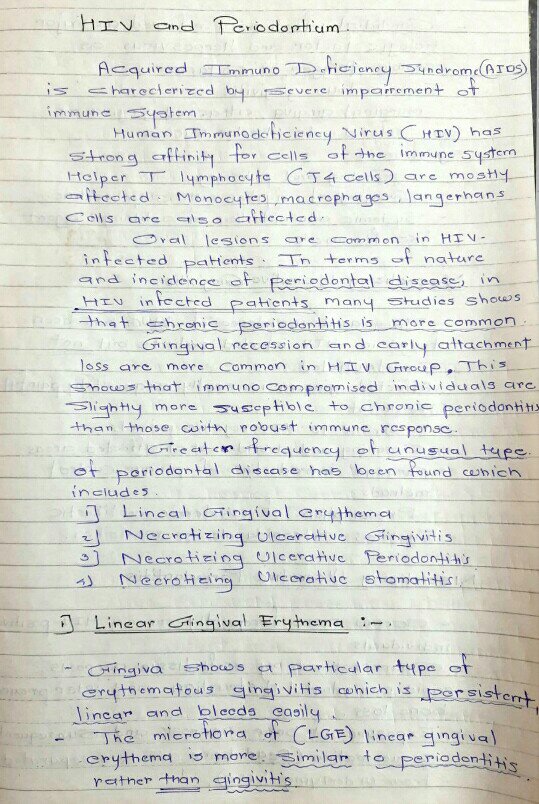 HIV and Periodontium.
Acquired Immuno Deficiency Syndrome (AIDS)
is charecterized by severe impairement of
immune system.
Human Immunodeficiency Virus (HIV) has
strong affinity for cells of the immune system
Helper T lymphocyte (T4 cells) are mostly
affected. Monocytes, macrophages, langerhans
Cells are also affected.
Oral lesions are common in HIV-
infected patients. In terms of nature
and incidence of periodontal disease, in
HIV infected patients many studies shows
that chronic periodontitis is more common.
Gingival recession and early attachment
loss are more common in HIV Group. This
shows that immuno compromised individuals are
Slightly more susceptible to chronic periodontitis
than those with robust immune response.
Greater frequency of unusual type
of periodontal disease has been found which
includes.
1] Lineal Gingival erythema
2] Necrotizing Ulcerative Gingivitis
3] Necrotizing Ulcerative Periodontitis
4] Necrotizing Ulcerative stomatitis.
1] Linear Gingival Erythema :-.
- Gingiva shows a particular type of
erythematous gingivitis which is persistent,
linear and bleeds easily.
- The microflora of (LGE) linear gingival
erythema is more similar to periodontitis
rather than gingivitis.